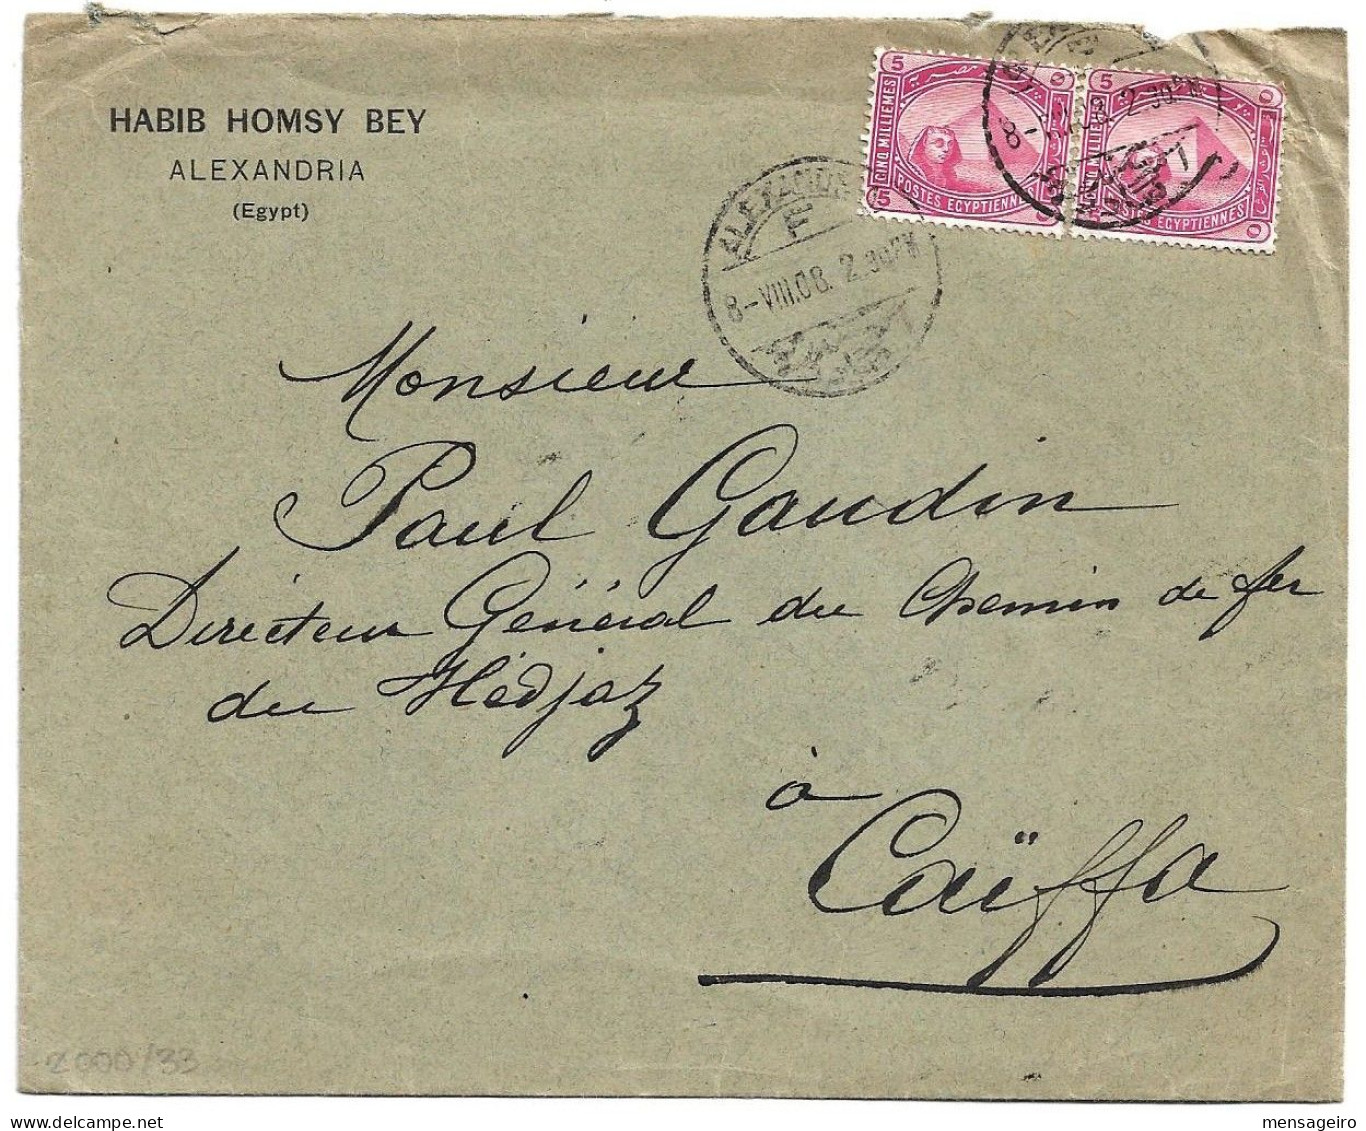 HABIB HOMSY BEY
ALEXANDRIA
(Egypt)
5 CINQ MILLIEMES
POSTES EGYPTIENNES
5
5
POSTES EGYPTIENNES
F
8-VIII.08. 2 30PM
8-VIII.08. 2 30PM
Monsieur
Paul Gaudin
Directeur Général du Chemin de fer
du Hédjaz
à
Caïffa
2000/33
mensageiro